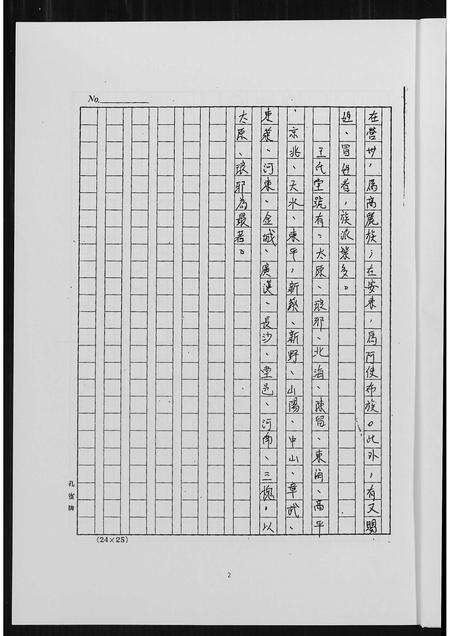 No.
在營州,為高麗族;在安東,為阿使布族。此外,有又賜
姓、冒姓者,族派繁多。
王氏堂號有:太原、瑯邪、北海、陳留、東海、高平
、京兆、天水、東平,新蔡、新野、山陽、中山、章武、
東萊、河東、金城、廣漢、長沙、堂邑、河南、三槐,以
太原、琅邪為最著。
孔雀牌
(24×25)
2